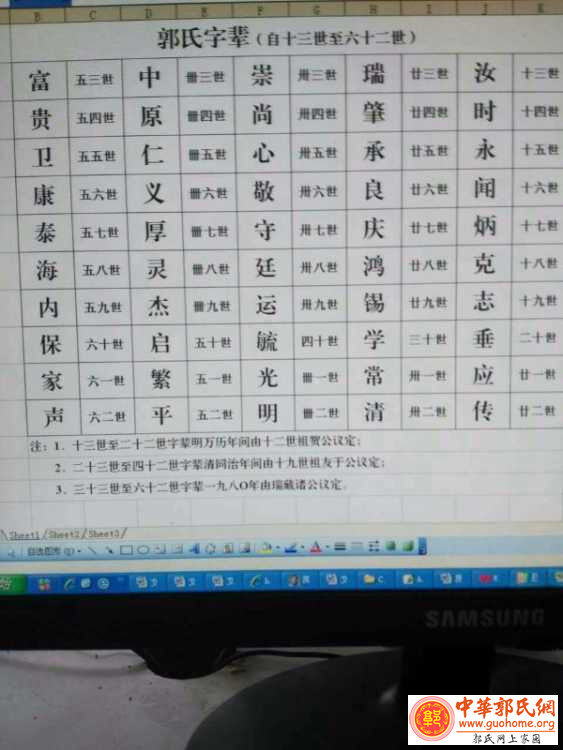 B C D E F G H I J K
郭氏字辈（自十三世至六十二世）
富 五三世 中 卌三世 崇 卅三世 瑞 廿三世 汝 十三世
贵 五四世 原 卌四世 尚 卅四世 肇 廿四世 时 十四世
卫 五五世 仁 卌五世 心 卅五世 承 廿五世 永 十五世
康 五六世 义 卌六世 敬 卅六世 良 廿六世 闻 十六世
泰 五七世 厚 卌七世 守 卅七世 庆 廿七世 炳 十七世
海 五八世 灵 卌八世 廷 卅八世 鸿 廿八世 克 十八世
内 五九世 杰 卌九世 运 卅九世 锡 廿九世 志 十九世
保 六十世 启 五十世 毓 四十世 学 三十世 垂 二十世
家 六一世 繁 五一世 光 卌一世 常 卅一世 应 廿一世
声 六二世 平 五二世 明 卌二世 清 卅二世 传 廿二世
注：1．十三世至二十二世字辈明万历年间由十二世祖贺公议定；
2．二十三世至四十二世字辈清同治年间由十九世祖友于公议定；
3．三十三世至六十二世字辈一九八O年由瑞藏诸公议定．
Sheet1/Sheet2/Sheet3/
自选图形(U)
SAMSUNG
中華郭氏網
www.guohome.org
郭氏网上家园